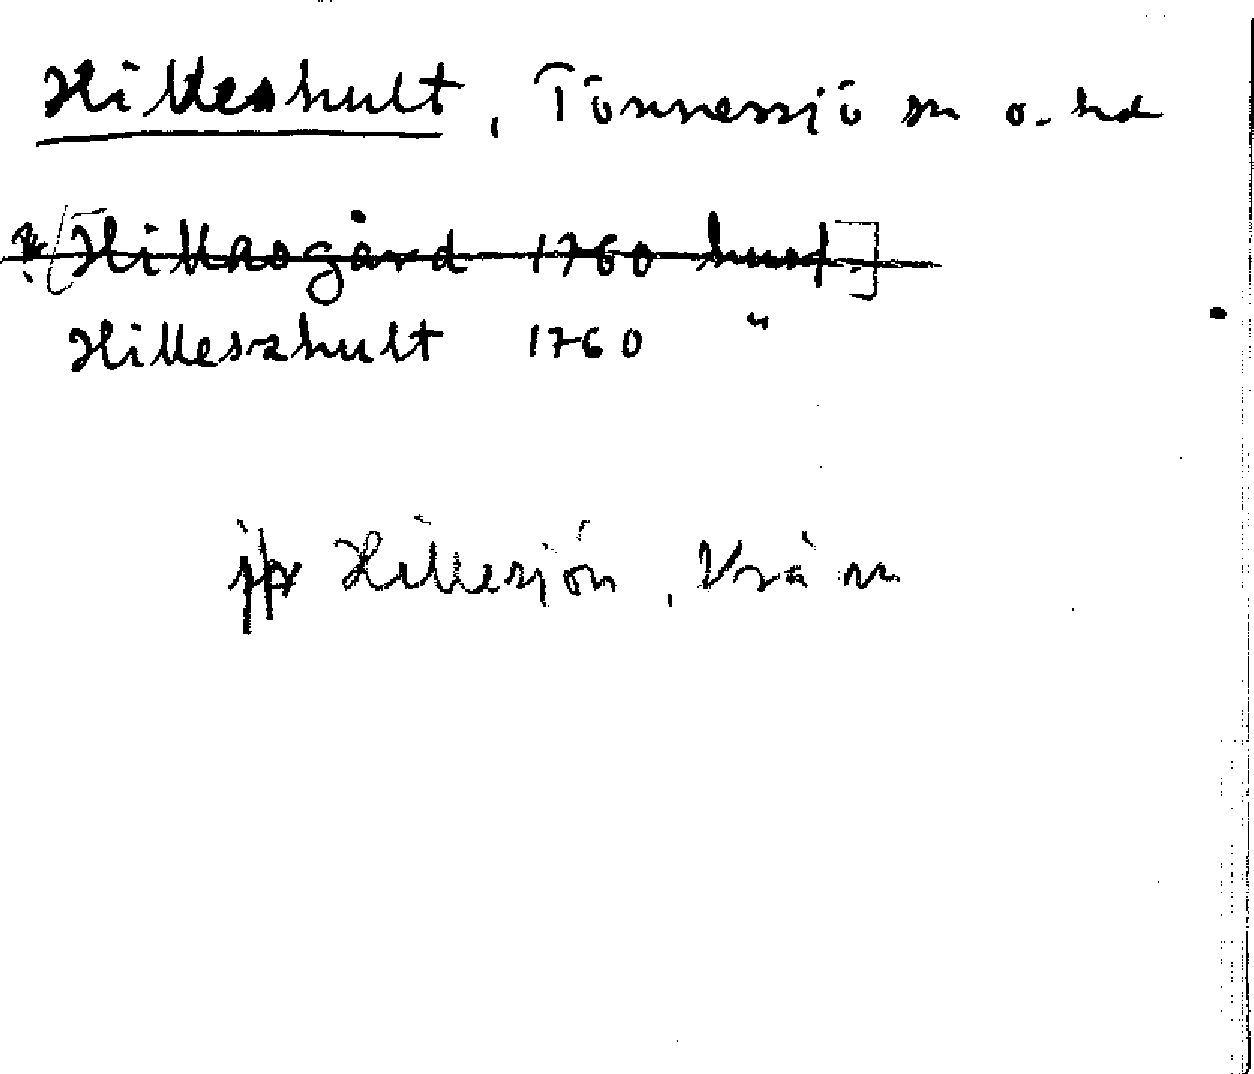 Hilleshult, Tönnersjö sn o. hd
[Hillaogård 1760 husf]
Hilleszhult 1760 "
jfr Hillesjön, Vrå sn